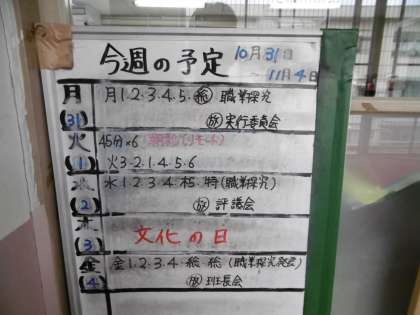 今週の予定 10月31日
～11月4日
月 月1.2.3.4.5.㊱ 職業探究
(31) 放 実行委員会
火 45分×6 朝勉(リモート)
(1) 火3.2.1.4.5.6
水 水1.2.3.4.木5.特(職業探究)
(2) 放 評議会
木
(3) 文化の日
金 金1.2.3.4.総 総(職業探究発表会)
(4) 放 班長会